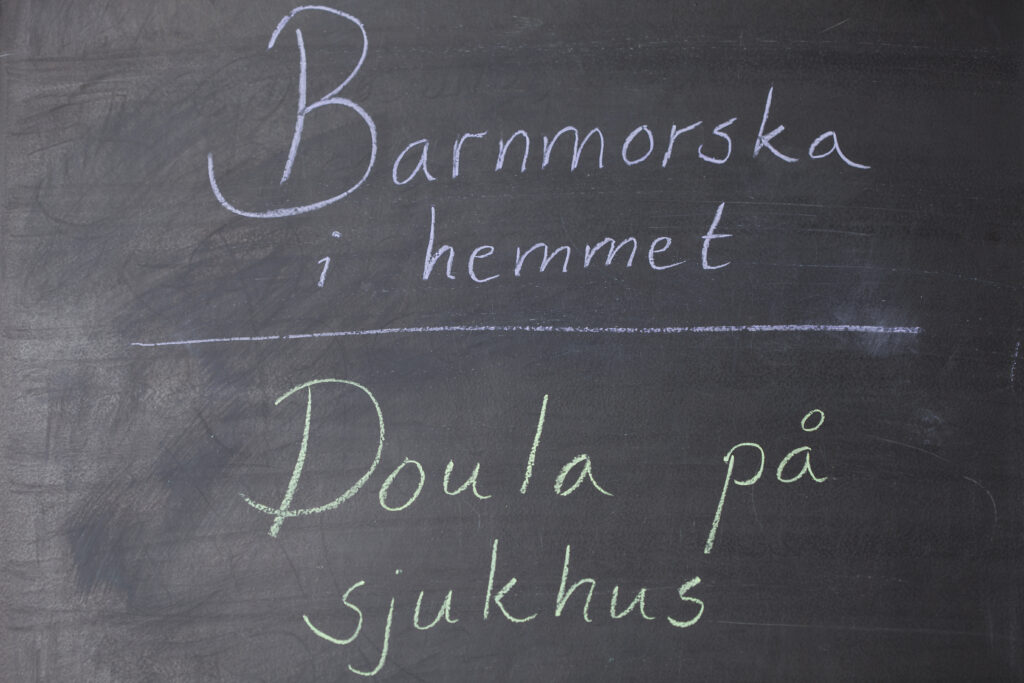 Barnmorska
i hemmet
Doula på
sjukhus